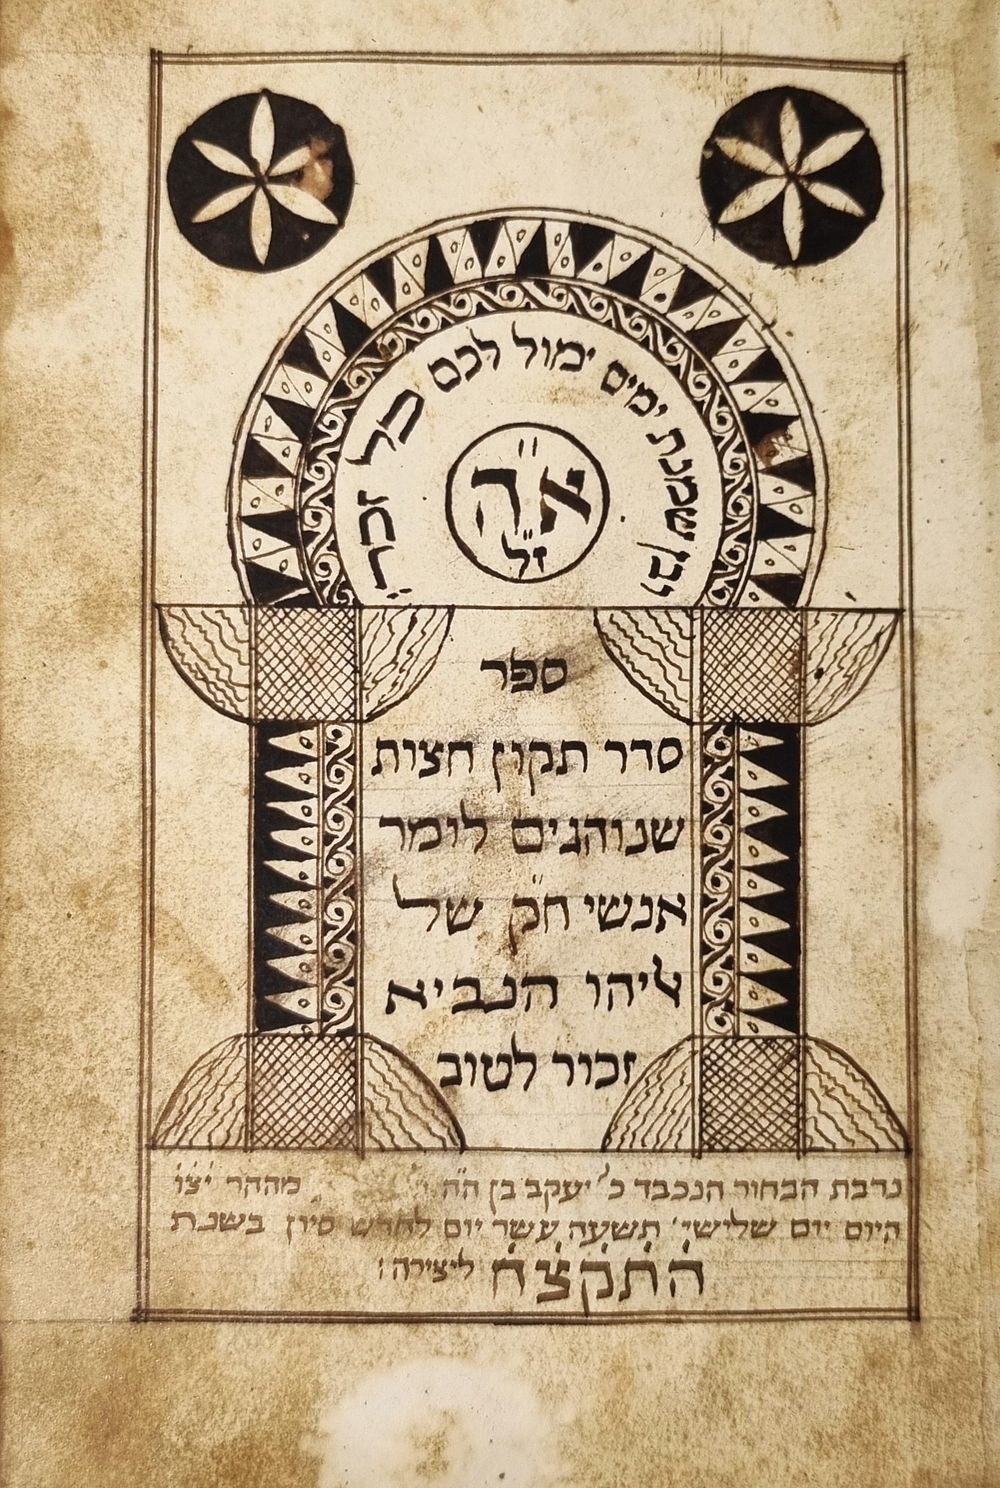 ובן שמנת ימים ימול לכם כל זכר:
א"ה
ז"ל
ספר
סדר תקון חצות
שנוהגים לומר
אנשי ח"ק של
אליהו הנביא
זכור לטוב
נדבת הבחור הנכבד כ' יעקב בן הה" מההר יצו
היום יום שלישי תשעה עשר יום לחדש סיון בשנת
התקצח ליצירה: